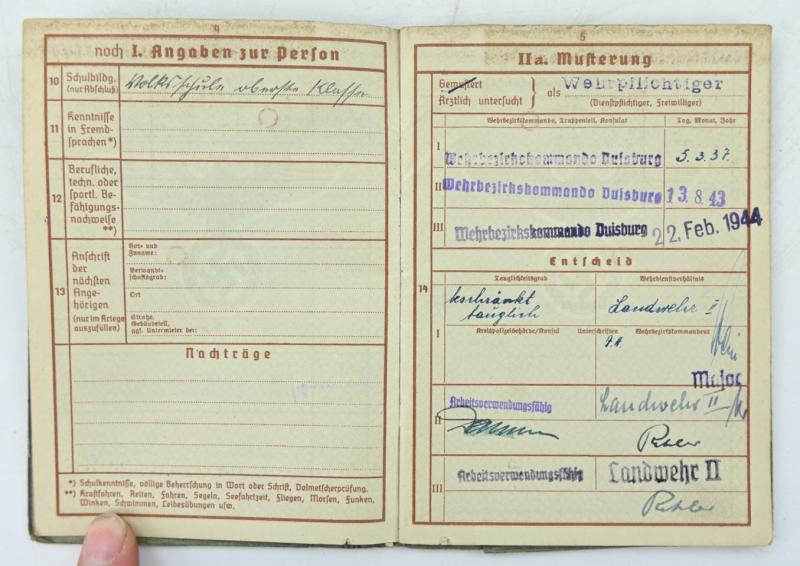 4
noch I. Angaben zur Person
10 Schulbildg. (nur Abschluß)
Volksschule oberste Klasse
11 Kenntnisse in Fremdsprachen*)
12 Berufliche, techn. oder sportl. Befähigungsnachweise **)
13 Anschrift der nächsten Angehörigen (nur im Kriege auszufüllen)
Vor- und Zuname:
Verwandtschaftsgrad:
Ort
Straße, Gebäudeteil, ggf. Untermieter bei:
Nachträge
*) Schulkenntnisse, völlige Beherrschung in Wort oder Schrift, Dolmetscherprüfung.
**) Kraftfahren, Reiten, Fahren, Segeln, Seefahrtzeit, Fliegen, Morsen, Funken,
Winken, Schwimmen, Leibesübungen usw.
5
IIa. Musterung
Gemustert
Ärztlich untersucht } als Wehrpflichtiger
(Dienstpflichtiger, Freiwilliger)
Wehrbezirkskommando, Truppenteil, Konsulat Tag, Monat, Jahr
I Wehrbezirkskommando Duisburg 5.3.37.
II Wehrbezirkskommando Duisburg 13.8.43
III Wehrbezirkskommando Duisburg 22. Feb. 1944
Entscheid
14
Tauglichkeitsgrad Wehrdienstverhältnis
beschränkt tauglich Landwehr I
I Kreispolizeibehörde/Konsul Unterschriften Wehrbezirkskommandeur
Major
II Arbeitsverwendungsfähig Landwehr II
III Arbeitsverwendungsfähig Landwehr II